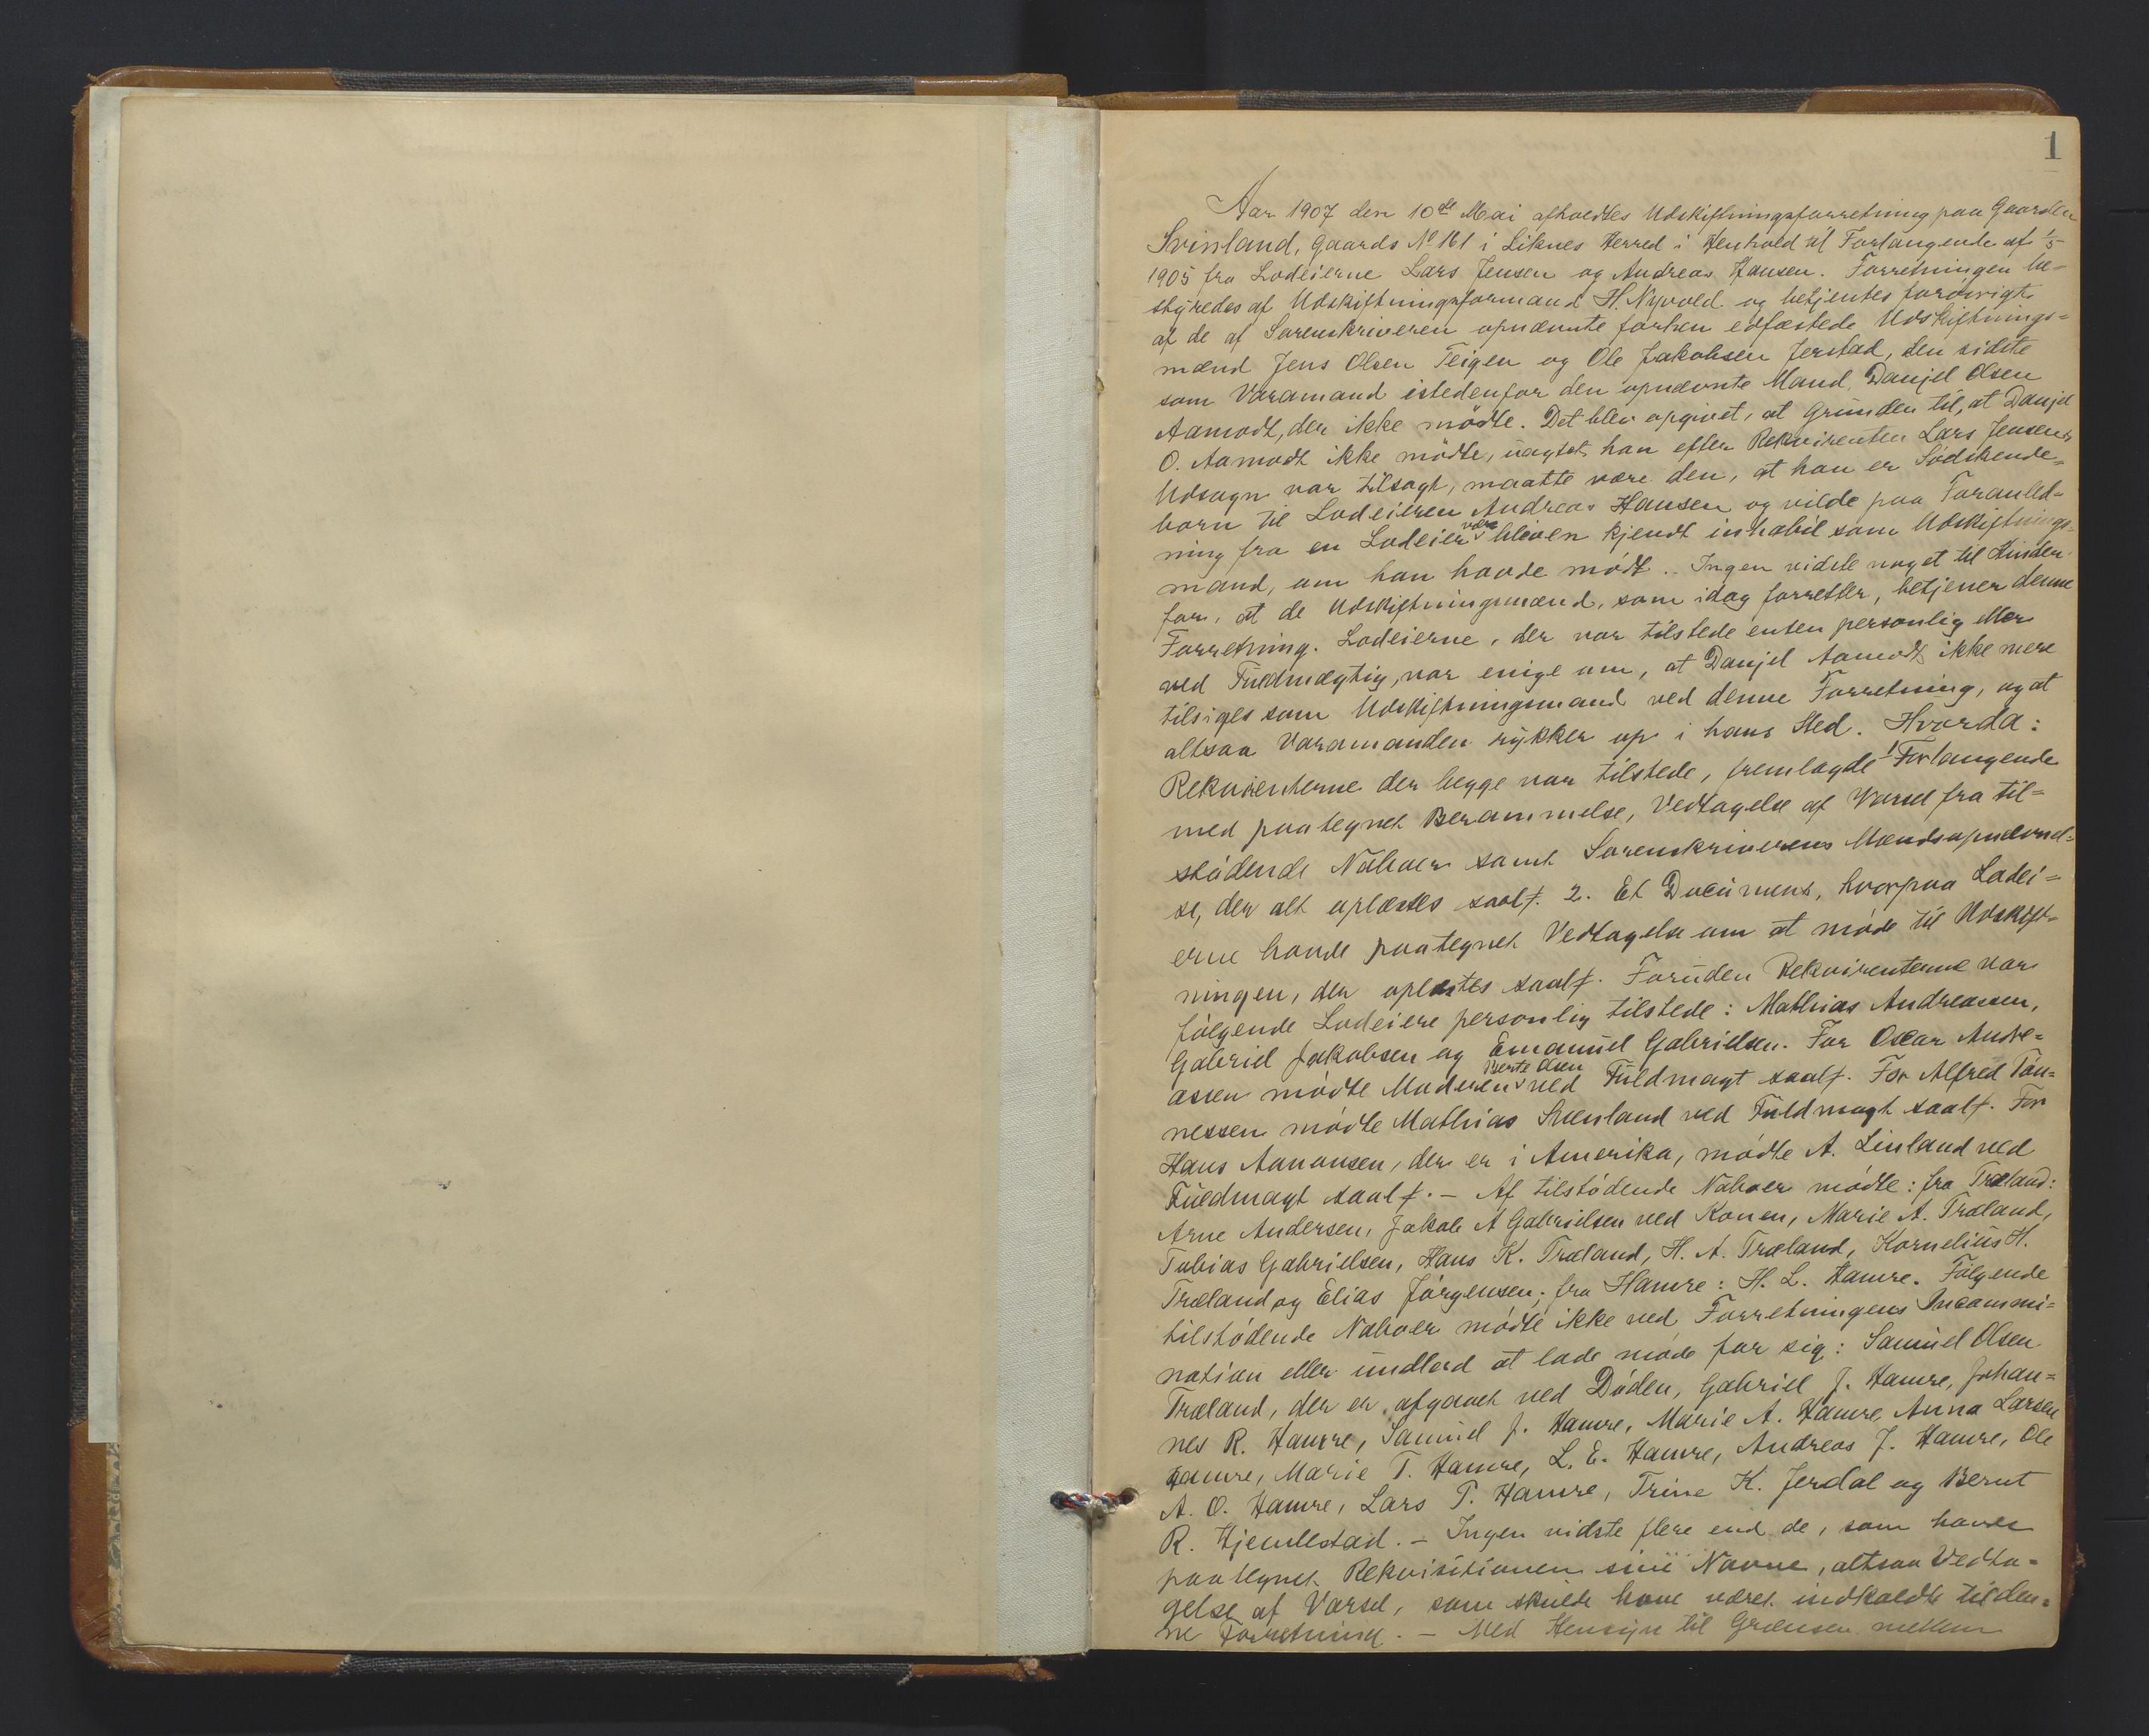 1
Aar 1907 den 10de Mai afholdtes Udskiftningsforretning paa Gaarden
Svinland, Gaards No 161 i Liknes Herred i Henhold til Forlangende af 1/5
1905 fra Lodeierne Lars Jensen og Andreas Hansen. Forretningen be-
styredes af Udskiftningsformand H. Nyvold og betjentes forøvrigt
af de af Sorenskriveren opnævnte forhen edfæstede Udskiftnings=
mænd Jens Olsen Teigen og Ole Jakobsen Jerstad, den sidste
som Varamand istedenfor den opnævnte Mand, Danjel Olsen
Aamodt, der ikke mødte. Det blev opgivet, at Grunden til, at Danjel
O. Aamodt ikke mødte, uagtet han efter Rekvirenten Lars Jensens
Udsagn var tilsagt, maatte være den, at han er Sødskende=
barn til Lodeieren Andreas Hansen og vilde paa Foranled=
ning fra en Lodeier være bleven kjendt inhabil som Udskiftnings=
mand, om han havde mødt. Ingen vidste noget til Hinder
for, at de Udskiftningsmænd, som idag forretter, betjener denne
Forretning. Lodeierne, der var tilstede enten personlig eller
ved Fuldmægtig, var enige om, at Danjel Aamodt ikke mere
tilsiges som Udskiftningsmand ved denne Forretning, og at
altsaa Varamanden rykker op i hans Sted. Hvorda:
Rekvirenterne der begge var tilstede, fremlagde 1 Forlangende
med paategnet Berammelse, Vedtagelse af Varsel fra til=
stødende Naboer samt Sorenskriverens Mandsopnævnel=
se, der alt oplæstes saalf. 2. Et Document, hvorpaa Lodei=
erne havde paategnet Vedtagelse om at møde til Udskift=
ningen, der oplæstes saalf. Foruden Rekvirenterne var
følgende Lodeiere personlig tilstede: Mathias Andreassen,
Gabriel Jakobsen og Emanuel Gabrielsen. For Oscar Andre=
assen mødte Moderen Berte Olsen ved Fuldmagt saalf. For Alfred Tøn=
nessen mødte Mathias Svenland ved Fuldmagt saalf. For
Hans Aanonsen, der er i Amerika, mødte A. Linland ved
Fuldmagt saalf. – Af tilstødende Naboer mødte: fra Træland:
Arne Andersen, Jakob A Gabrielsen ved Konen, Marie A. Træland,
Tobias Gabrielsen, Hans K. Træland, H. A. Træland, Kornelius H.
Træland og Elias Jørgensen; fra Hamre: H. L. Hamre. Følgende
tilstødende Naboer mødte ikke ved Forretningens Incammi=
nation eller undlod at lade møde for sig: Samuel Olsen
Træland, der er afgaaet ved Døden, Gabriel J. Hamre, Johan=
nes R. Hamre, Samuel J. Hamre, Marie A. Hamre, Anna Larsen
Hamre, Marie T. Hamre, L. E. Hamre, Andreas J. Hamre, Ole
A. O. Hamre, Lars T. Hamre, Trine K. Jerdal og Bernt
R. Hjemlestad. – Ingen vidste flere end de, som havde
paategnet Rekvisitionen sine Navne, altsaa Vedta=
gelse af Varsel, som skulde have været indkaldt til den=
ne Forretning. – Med Hensyn til Grænsen mellem